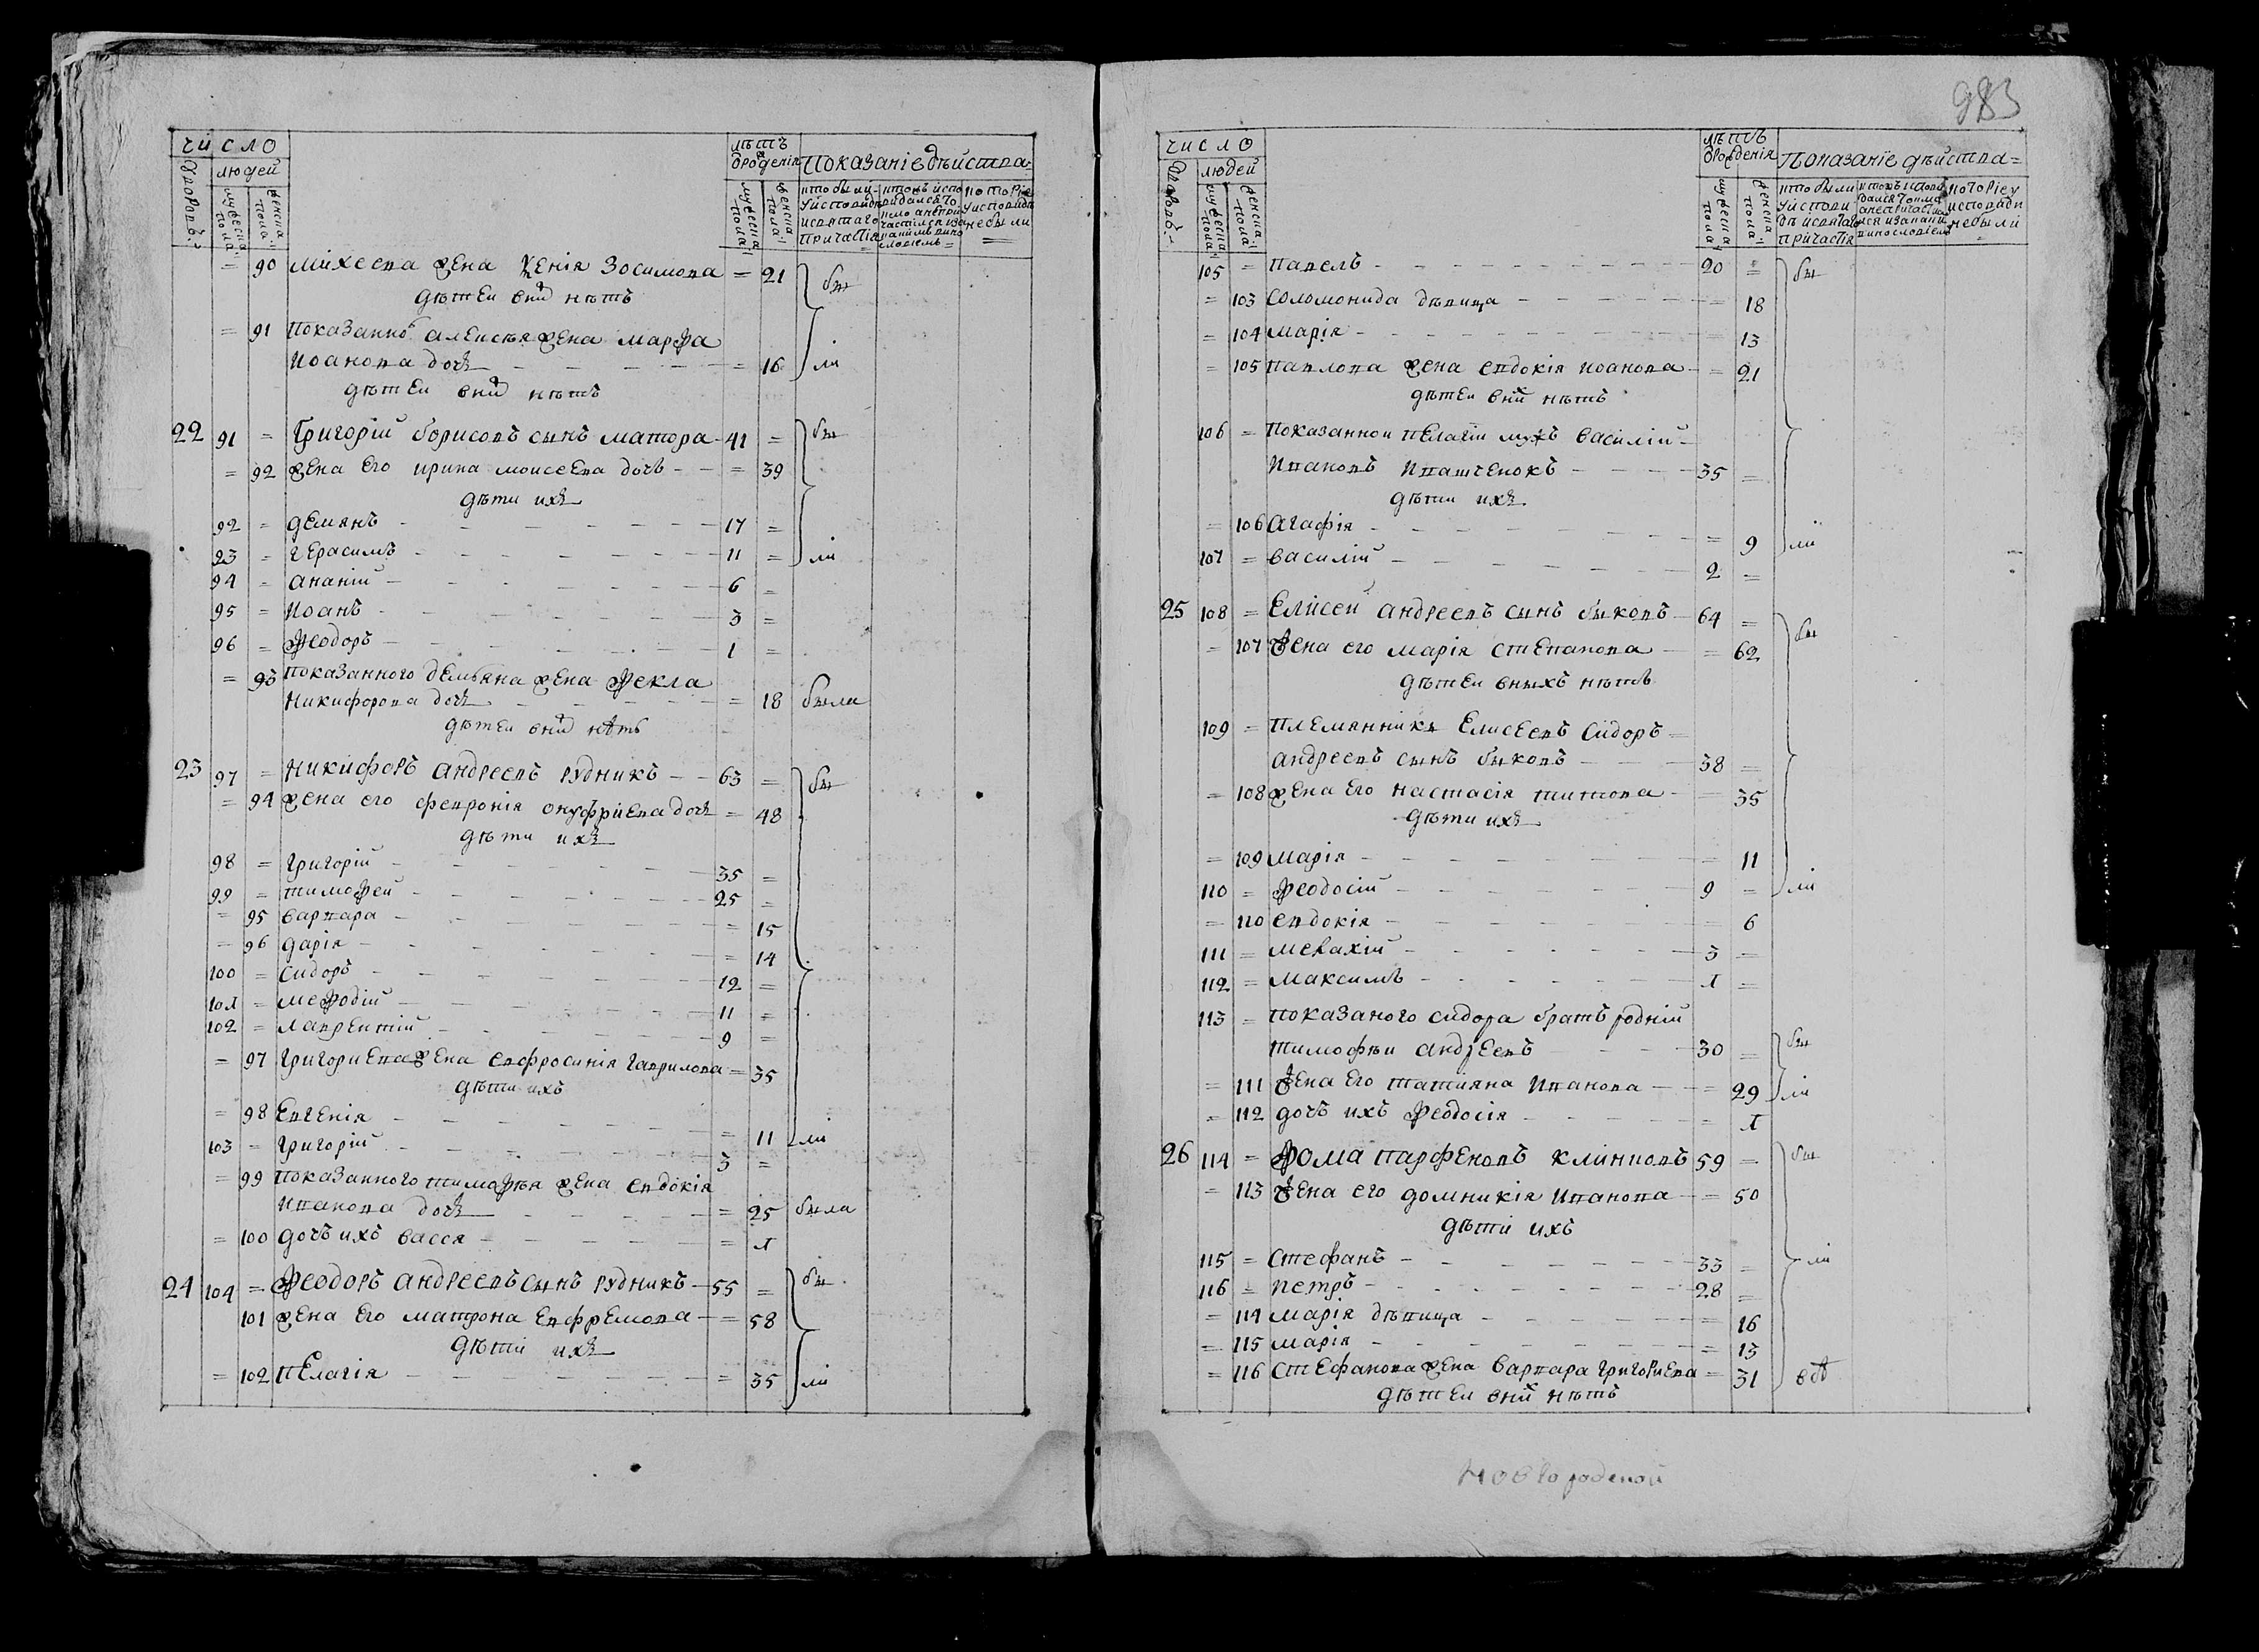 число
лѣтъ
дворовъ.
людей
ѿ рожденія
Показаніе дѣйства
мужеска пола
женска пола
мужеска пола
женска пола
кто были
у исповеди
и святаго
причастія
не были
= 90 Михеева жена Ѯенія Зосимова = 21 бы
дѣтей в ний нѣтъ
= 91 Показанного Алексѣя жена Марфа
Иоанова дочь = 16 ли
дѣтей в ний нѣтъ
22 91 = Григорій Борисовъ сынъ Матора 41 = бы
= 92 Жена его Ирина Моисеева дочь = 39
дѣти ихъ
92 = Демянъ 17 =
93 = Герасимъ 11 = ли
94 = Ананій 6 =
95 = Иоанъ 3 =
96 = Ѳеодоръ 1 =
= 93 Показанного Демьяна жена Ѳекла
Никифорова дочь = 18 была
дѣтей в ний нѣтъ
23 97 = Никифоръ Андреевъ Рудникъ 63 = бы
= 94 Жена его Февронія Онуфриева дочь = 48
дѣти ихъ
98 = Григорій 35 =
99 = Тимофей 25 =
= 95 Варвара = 15
= 96 Дарія = 14
100 = Сидоръ 12 =
101 = Меѳодій 11 =
102 = Лаврентій 9 =
= 97 Григориева жена Евфросинія Гаврилова = 35
дѣти ихъ
= 98 Евгенія = 11 ли
103 = Григорій 3 =
= 99 Показанного Тимофѣя жена Евдокія
Иванова дочь = 25 была
= 100 Дочъ ихъ Васса = 1
24 104 = Ѳеодоръ Андреевъ сынъ Рудникъ 55 = бы
101 Жена его Матрона Евфремова = 58
дѣти ихъ
= 102 Пелагія = 35 ли
983
число
лѣтъ
дворовъ.
людей
ѿ рожденія
Показаніе дѣйства
мужеска пола
женска пола
мужеска пола
женска пола
кто были
у исповеди
и святаго
причастія
не были
105 = Павелъ 20 = бы
= 103 Соломонида дѣвица = 18
= 104 Марія = 13
= 105 Павлова жена Евдокія Иоанова = 21
дѣтей в ний нѣтъ
106 = Показанной Пелагіи мужъ Василій
Ивановъ Иващенокъ 35 =
дѣти ихъ
= 106 Агафія = 9 ли
107 = Василій 2 =
25 108 = Елисей Андреевъ сынъ Быковъ 64 = бы
= 107 Жена его Марія Степанова = 62
дѣтей в ныхъ нѣтъ
109 = Племянникъ Елисеевъ Сидоръ
Андреевъ сынъ Быковъ 38 =
= 108 Жена его Настасія Титова = 35
дѣти ихъ
= 109 Марія = 11
110 = Ѳеодосій 9 = ли
= 110 Евдокія = 6
111 = Малахій 3 =
112 = Максимъ 1 =
113 = Показаного Сидора братъ родній
Тимофѣй Андреевъ 30 = бы
= 111 Жена его Татияна Иванова = 29 ли
= 112 Дочъ ихъ Ѳеодосія = 1
26 114 = Ѳома Парфеновъ Клинковъ 59 = бы
= 113 Жена его Домникія Иванова = 50
дѣти ихъ
115 = Стефанъ 33 = ли
116 = Петръ 28 =
= 114 Марія дѣвица = 16
= 115 Марія = 13
= 116 Стефанова жена Варвара Григориева = 31
дѣтей в ний нѣтъ